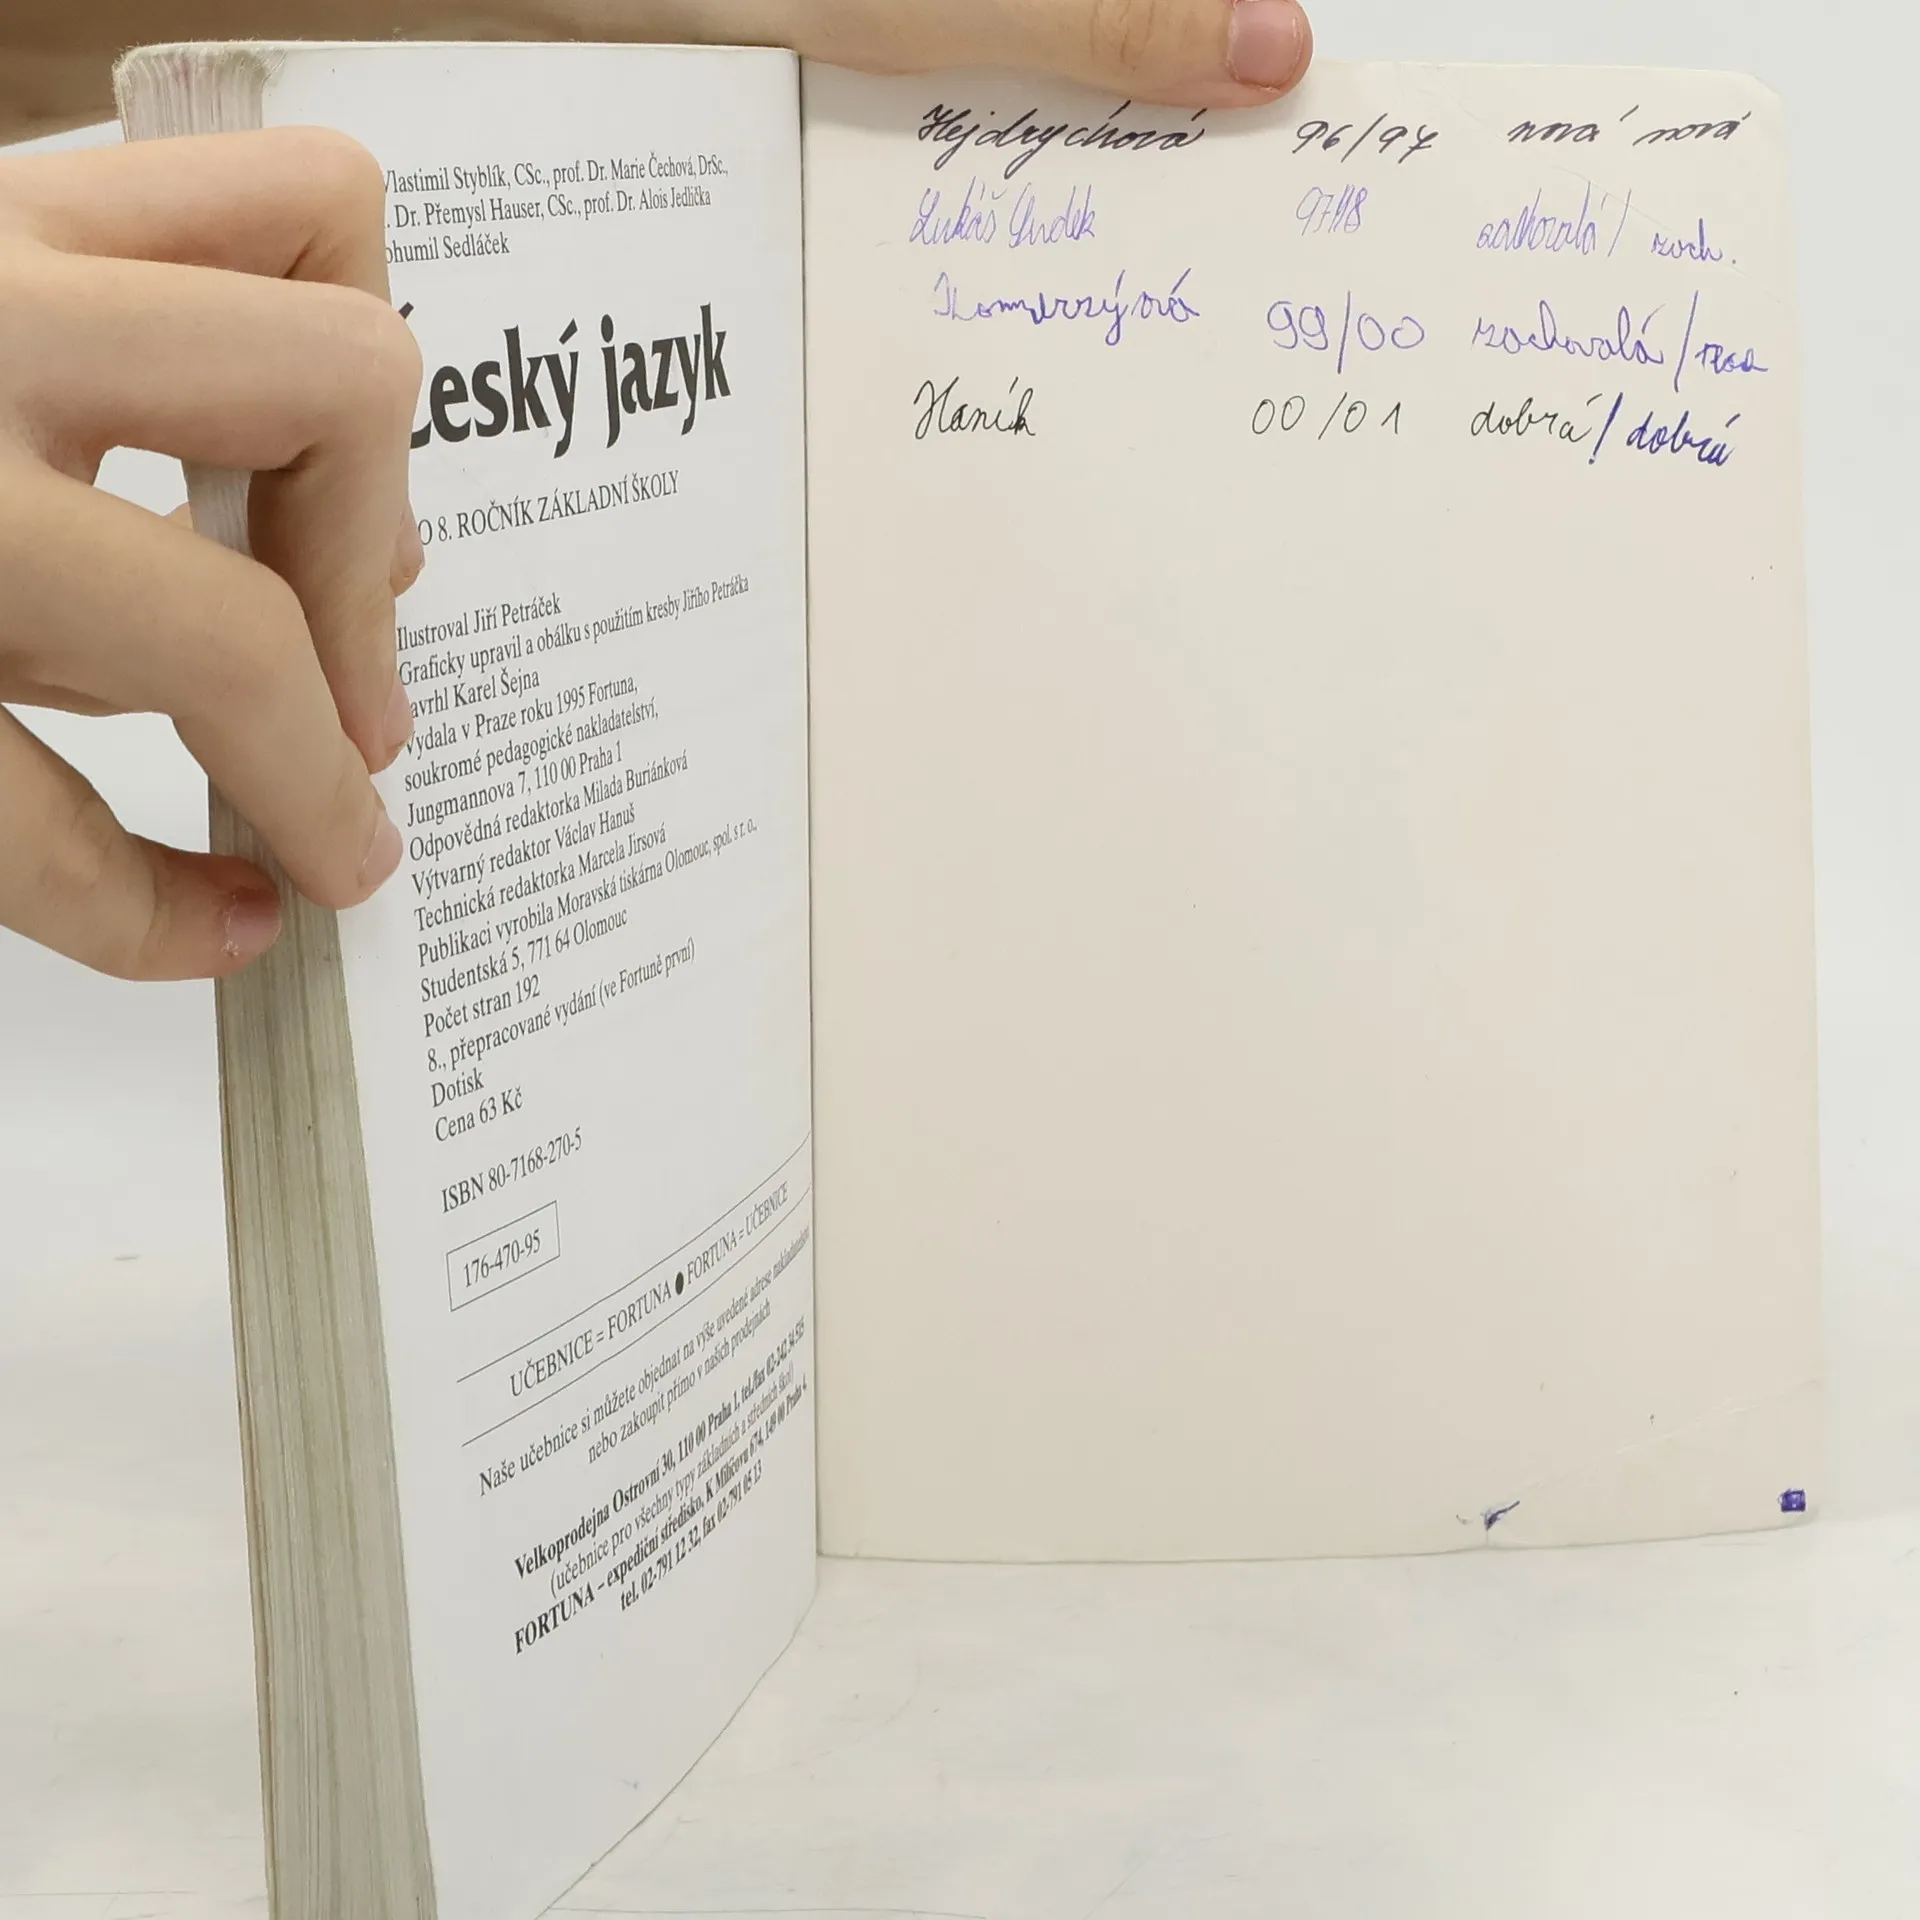 Vlastimil Styblík, CSc., prof. Dr. Marie Čechová, DrSc.,
. Dr. Přemysl Hauser, CSc., prof. Dr. Alois Jedlička
ohumil Sedláček
Český jazyk
O 8. ROČNÍK ZÁKLADNÍ ŠKOLY
Ilustroval Jiří Petráček
Graficky upravil a obálku s použitím kresby Jiřího Petráčka
avrhl Karel Šejna
Vydala v Praze roku 1995 Fortuna,
soukromé pedagogické nakladatelství,
Jungmannova 7, 110 00 Praha 1
Odpovědná redaktorka Milada Buriánková
Výtvarný redaktor Václav Hanuš
Technická redaktorka Marcela Jirsová
Publikaci vyrobila Moravská tiskárna Olomouc, spol. s r. o.,
Studentská 5, 771 64 Olomouc
Počet stran 192
8., přepracované vydání (ve Fortuně první)
Dotisk
Cena 63 Kč
ISBN 80-7168-270-5
176-470-95
UČEBNICE = FORTUNA ● FORTUNA = UČEBNICE
Naše učebnice si můžete objednat na výše uvedené adrese nakladatelství
nebo zakoupit přímo v našich prodejnách
Velkoprodejna Ostrovní 30, 110 00 Praha 1, tel./fax 02-242
(učebnice pro všechny typy základních a středních škol)
FORTUNA – expediční středisko, K Milíčovu 674, 149 00 Praha 4,
tel. 02-791 12 32, fax 02-791 05 13
Hejdrychová 96/97 nová nová
Lukáš Ludek zachovalá / zach.
99/00 zachovalá /
Haník 00/01 dobrá / dobrá